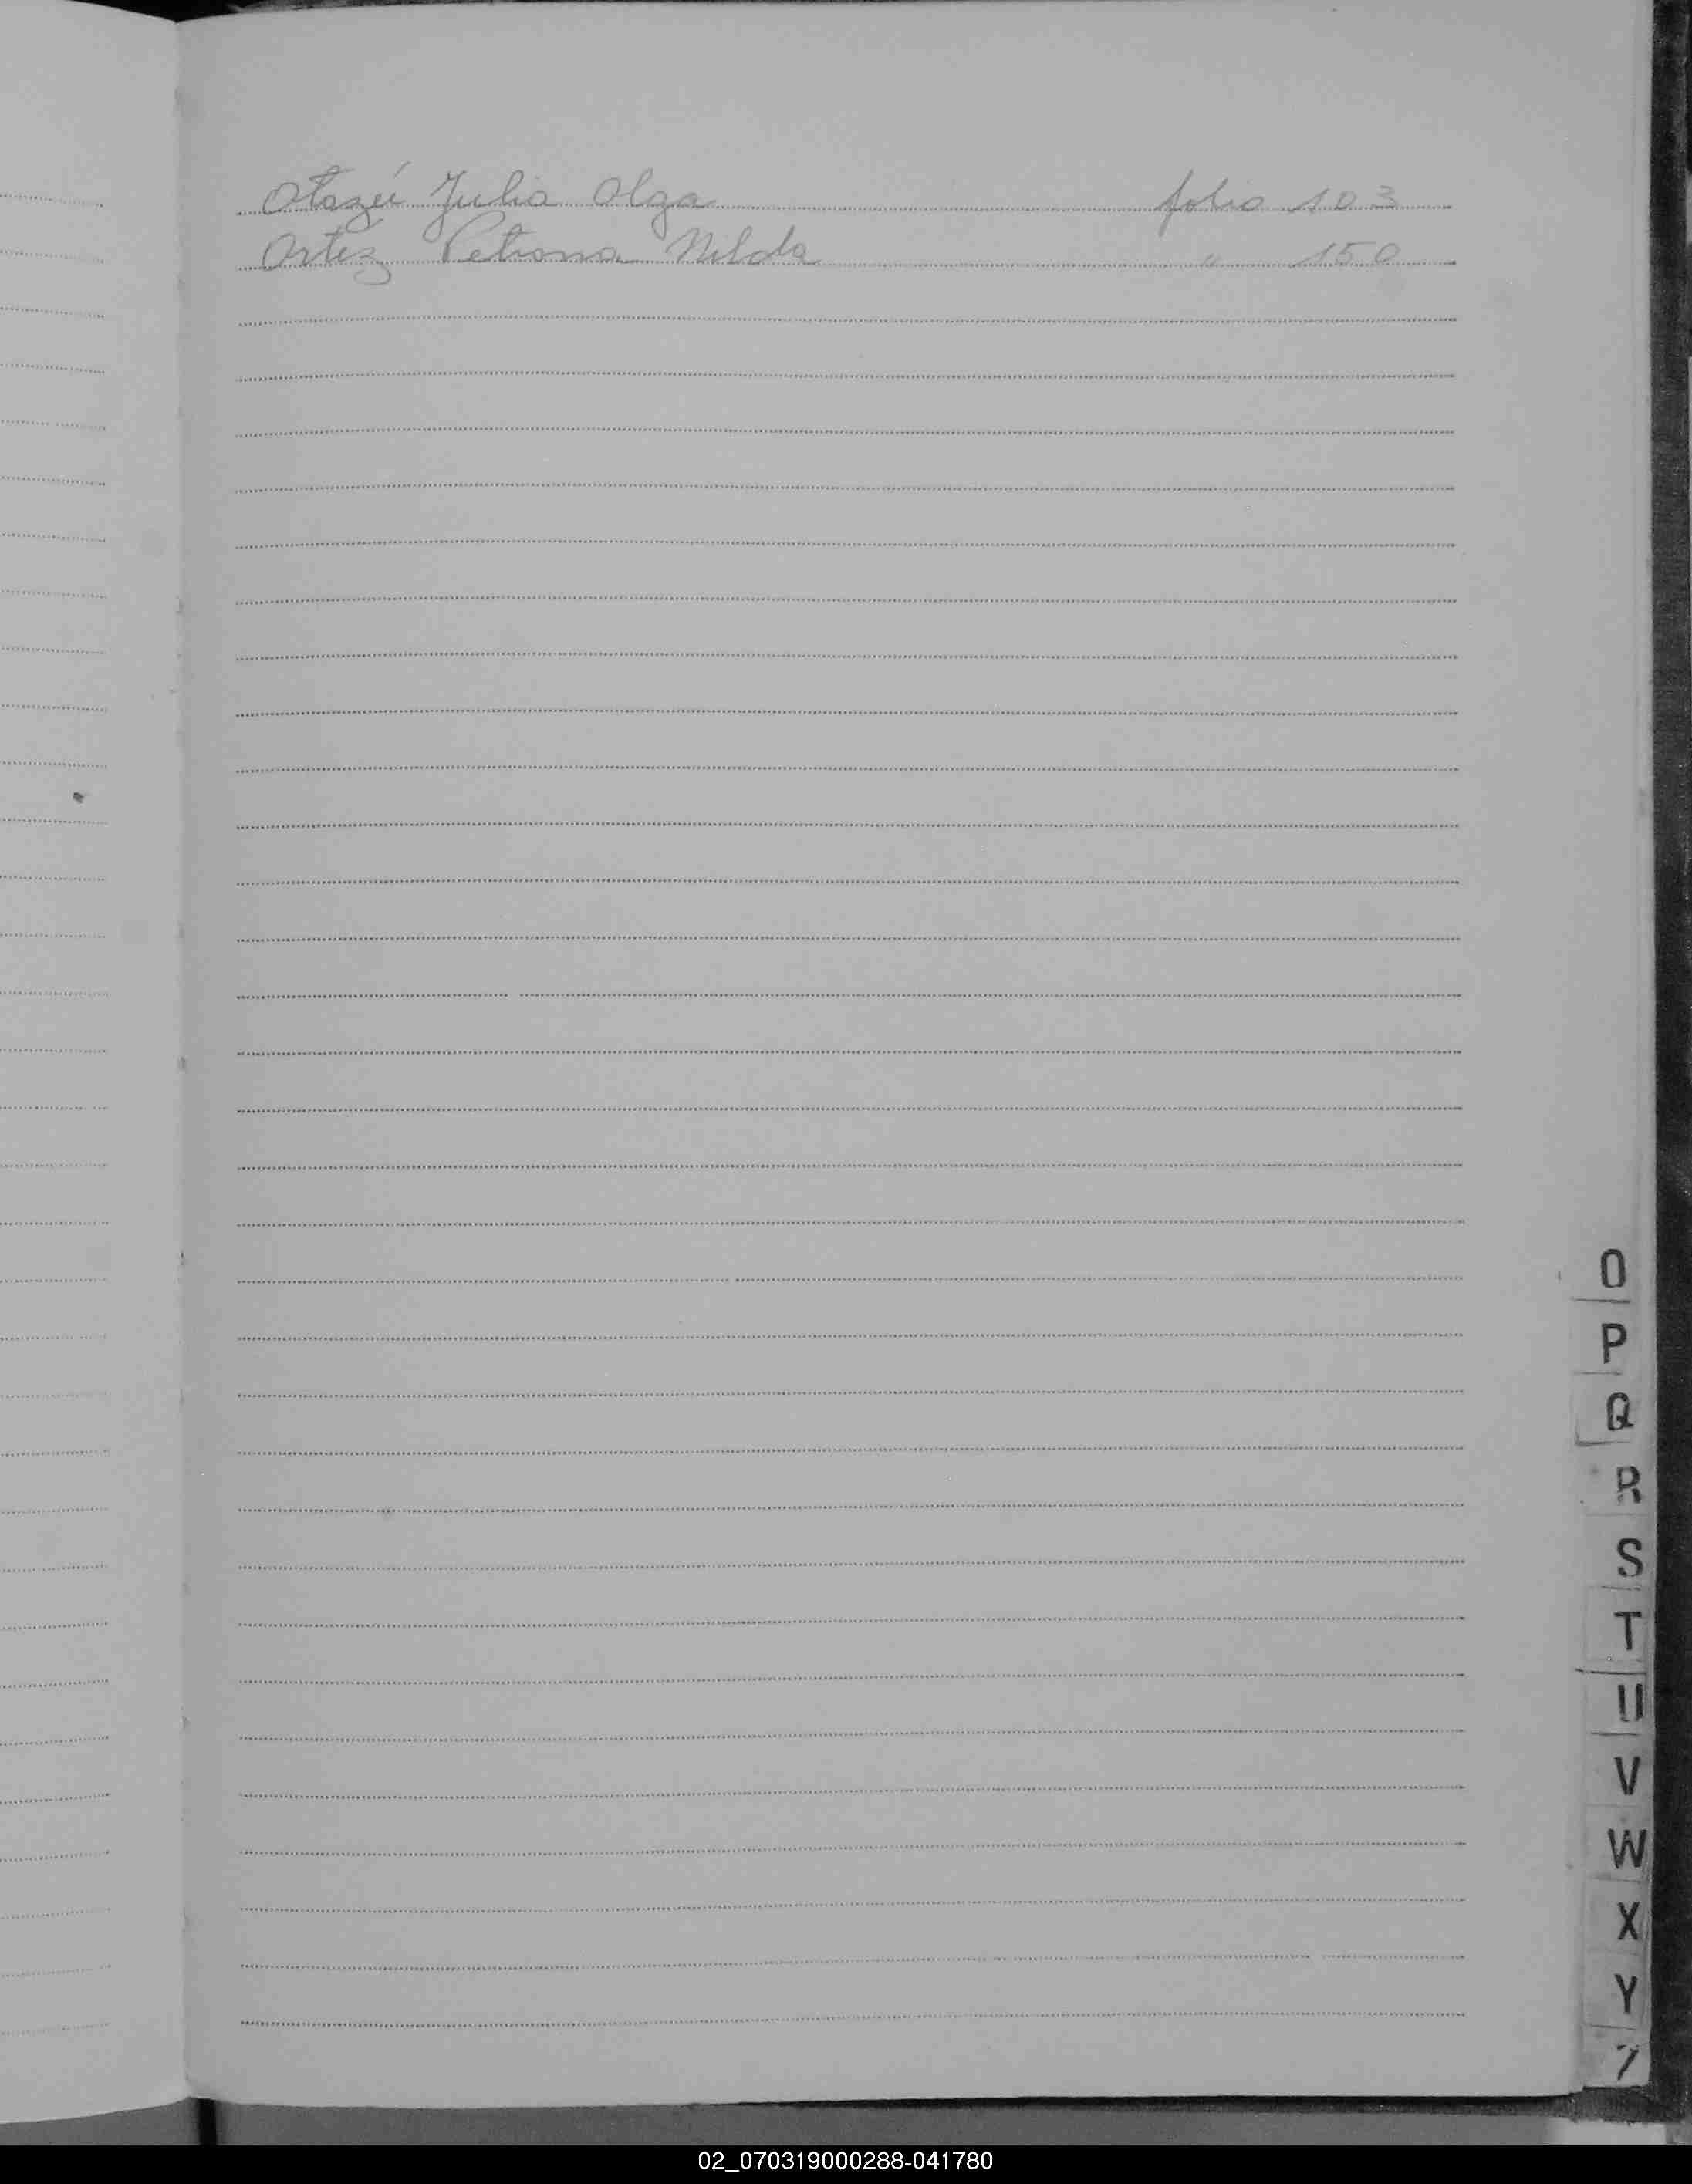 Otazú Julia Olga folio 103
Ortiz Petrona Nilda " 150
O
P
Q
R
S
T
U
V
W
X
Y
Z
02_070319000288-041780